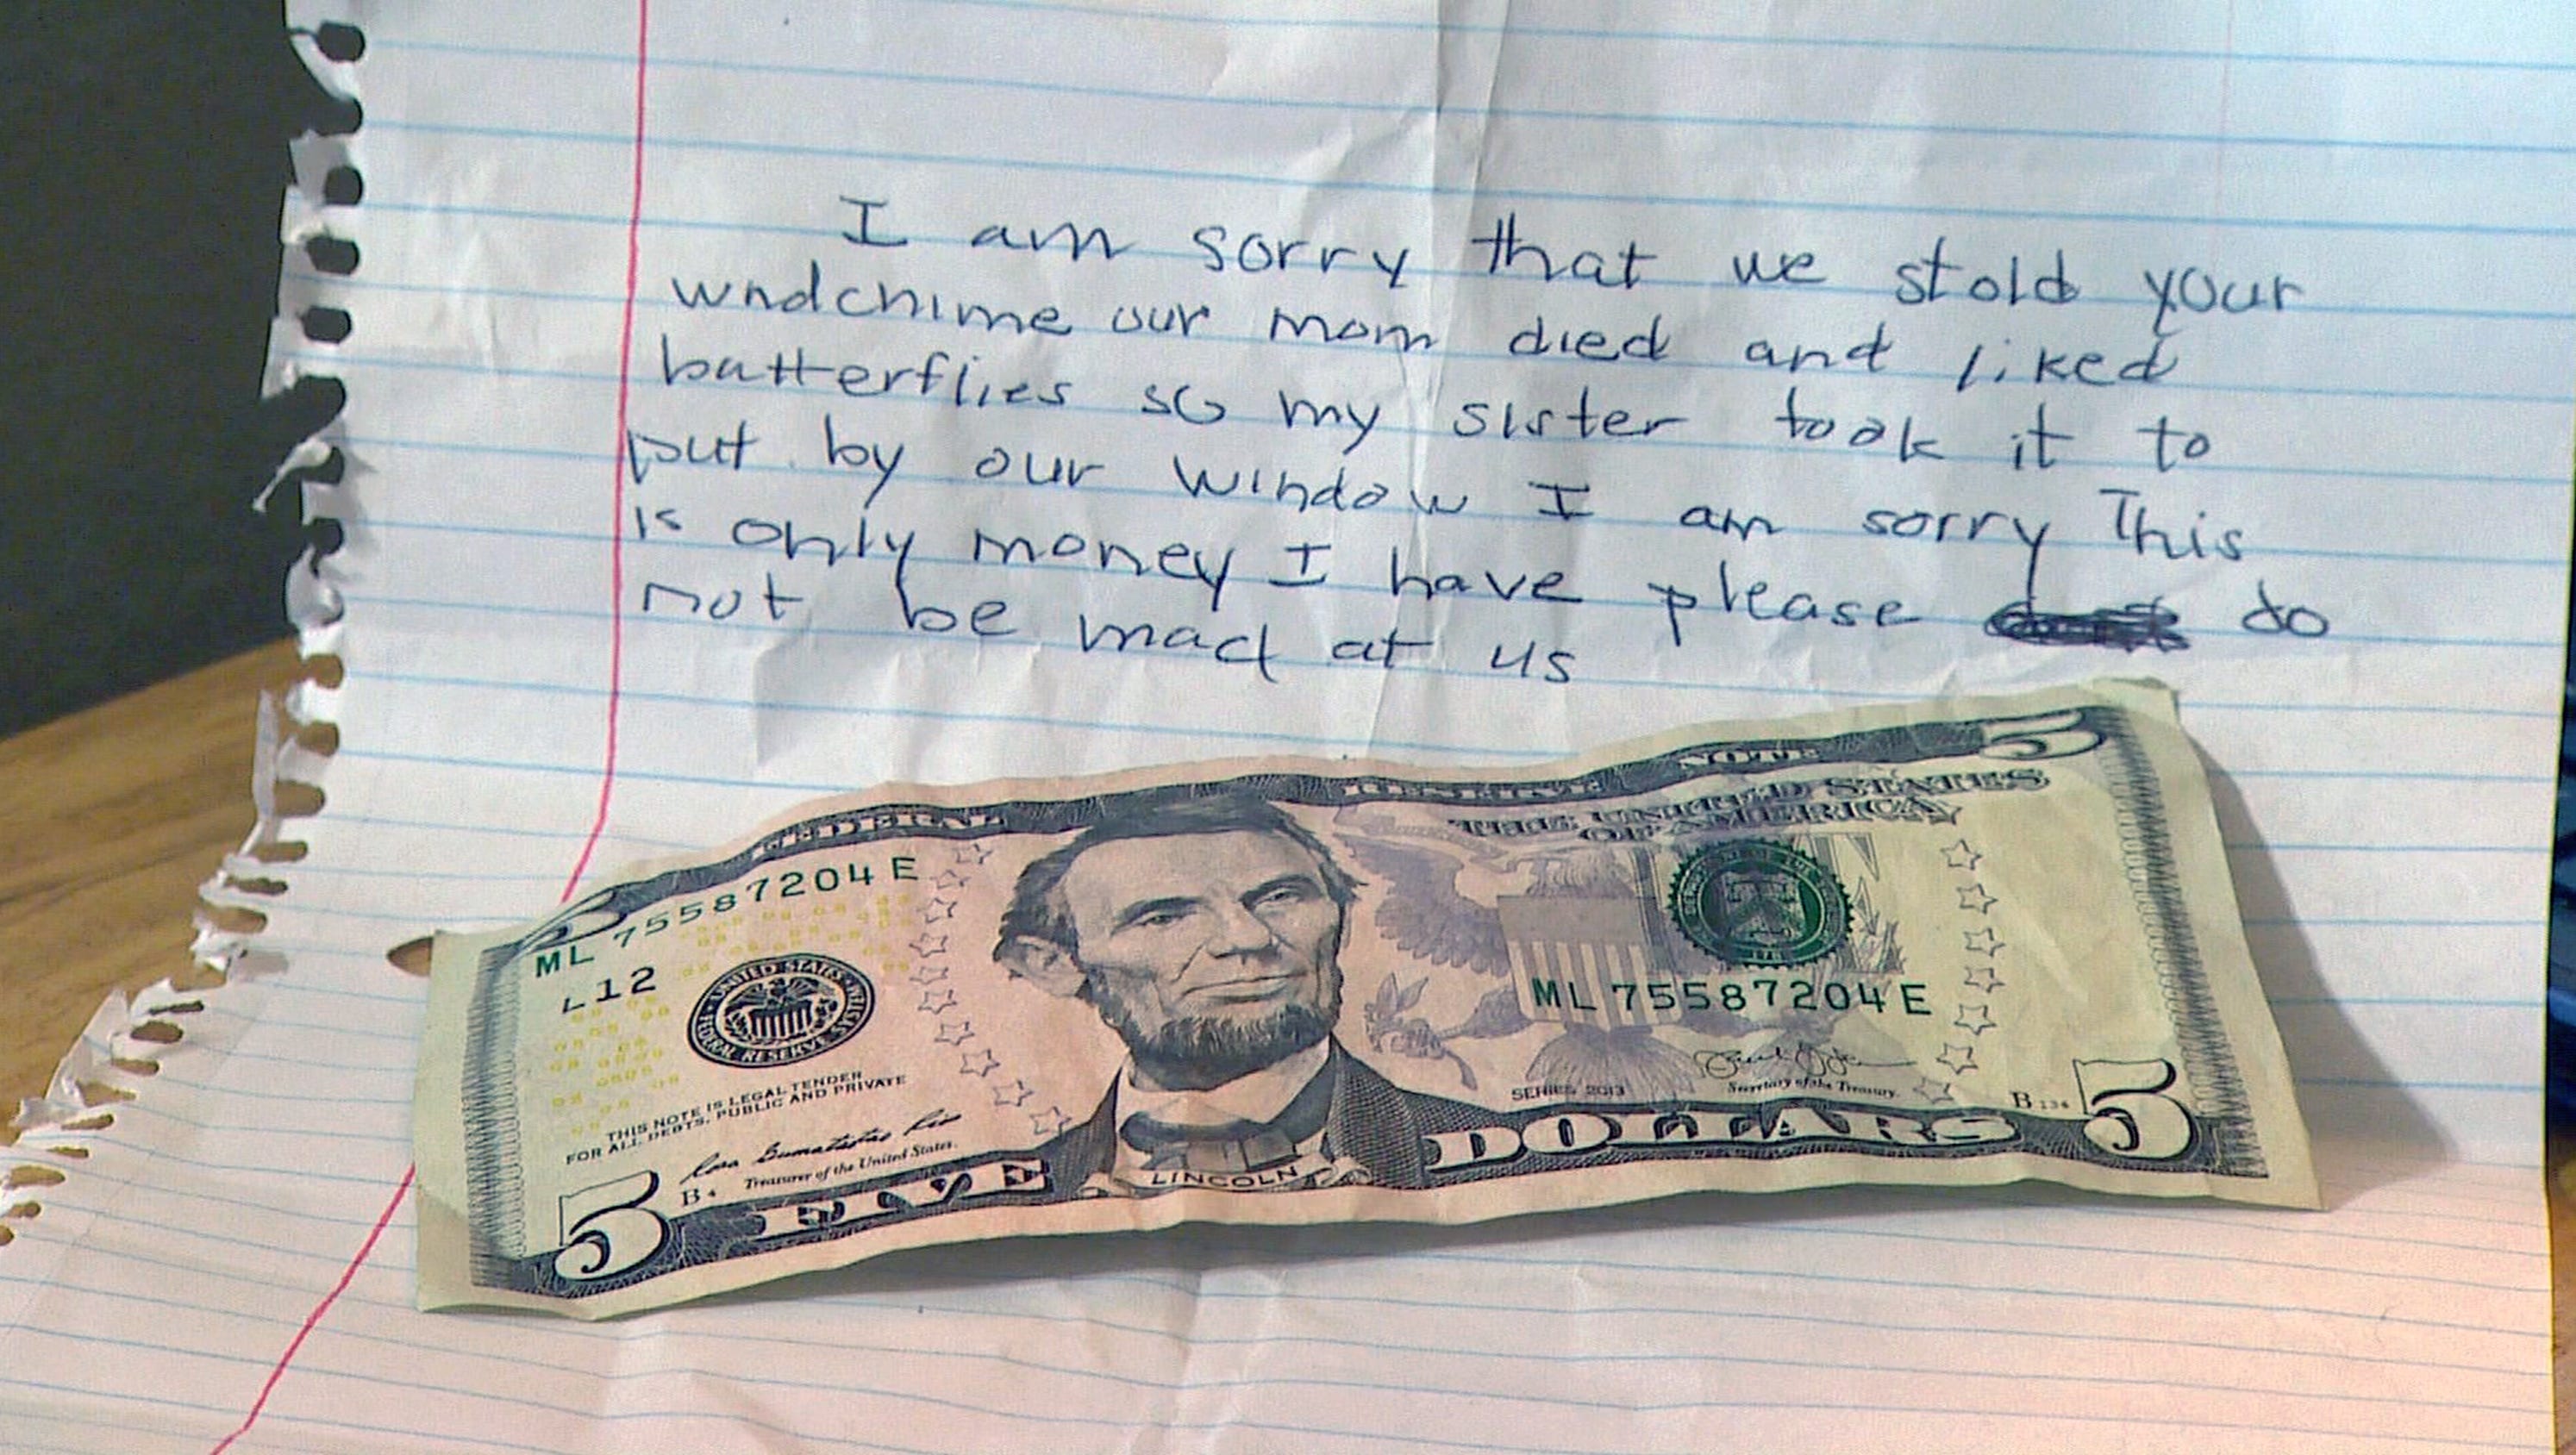 I am sorry that we stold your
wndchime our mom died and liked
butterflies so my sister took it to
put by our window I am sorry This
is only money I have please do
not be mad at us
FEDERAL RESERVE NOTE
5
THE UNITED STATES
OF AMERICA
ML 75587204 E
L12
UNITED STATES
FEDERAL RESERVE
ML 75587204 E
SERIES 2013
Secretary of the Treasury.
THIS NOTE IS LEGAL TENDER
FOR ALL DEBTS, PUBLIC AND PRIVATE
Treasurer of the United States.
B
5
B
FIVE
LINCOLN
DOLLARS
5